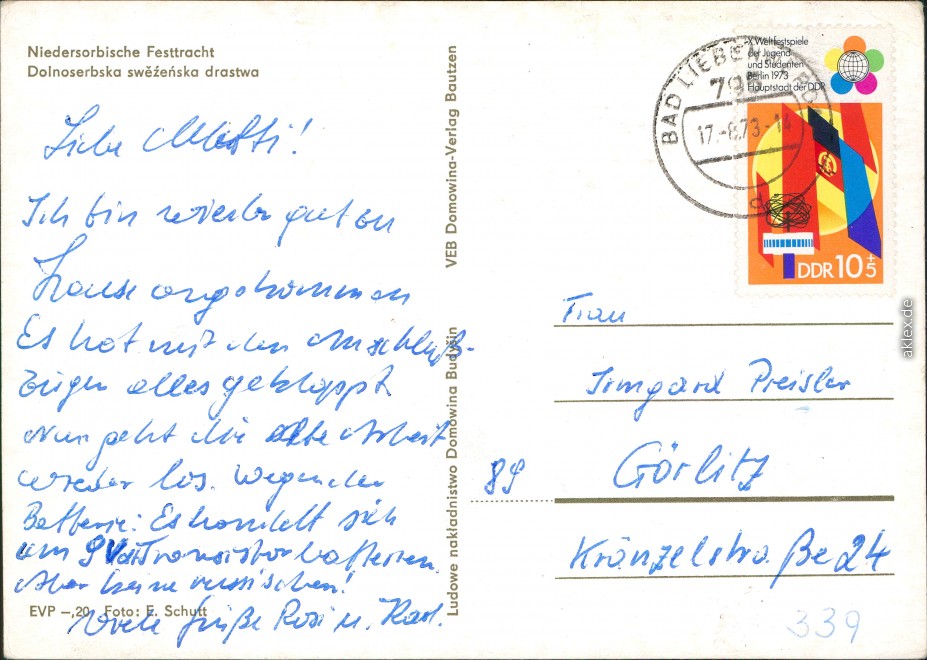 Niedersorbische Festtracht
Dolnoserbska swěźeńska drastwa
Liebe Mutti!
Ich bin wieder gut zu
Hause angekommen
Es hat mit den Anschluß-
zügen alles geklappt.
Nun geht die alte Arbeit
wieder los. Wegen der
Batterie: Es handelt sich
um 9 Volt Transistorbatterien
Aber keine russischen!
Viele Grüße Rosi u. Karl.
EVP –,20 Foto: E. Schutt
VEB Domowina-Verlag Bautzen
Ludowe nakładnistwo Domowina Budyšin
X. Weltfestspiele
der Jugend
und Studenten
Berlin 1973
Hauptstadt der DDR
DDR 10+5
BAD LIEBENWERDA
795
17.-8.73-14
d
Frau
Irmgard Preisler
89 Görlitz
Kränzelstraße 24
339
aklex.de